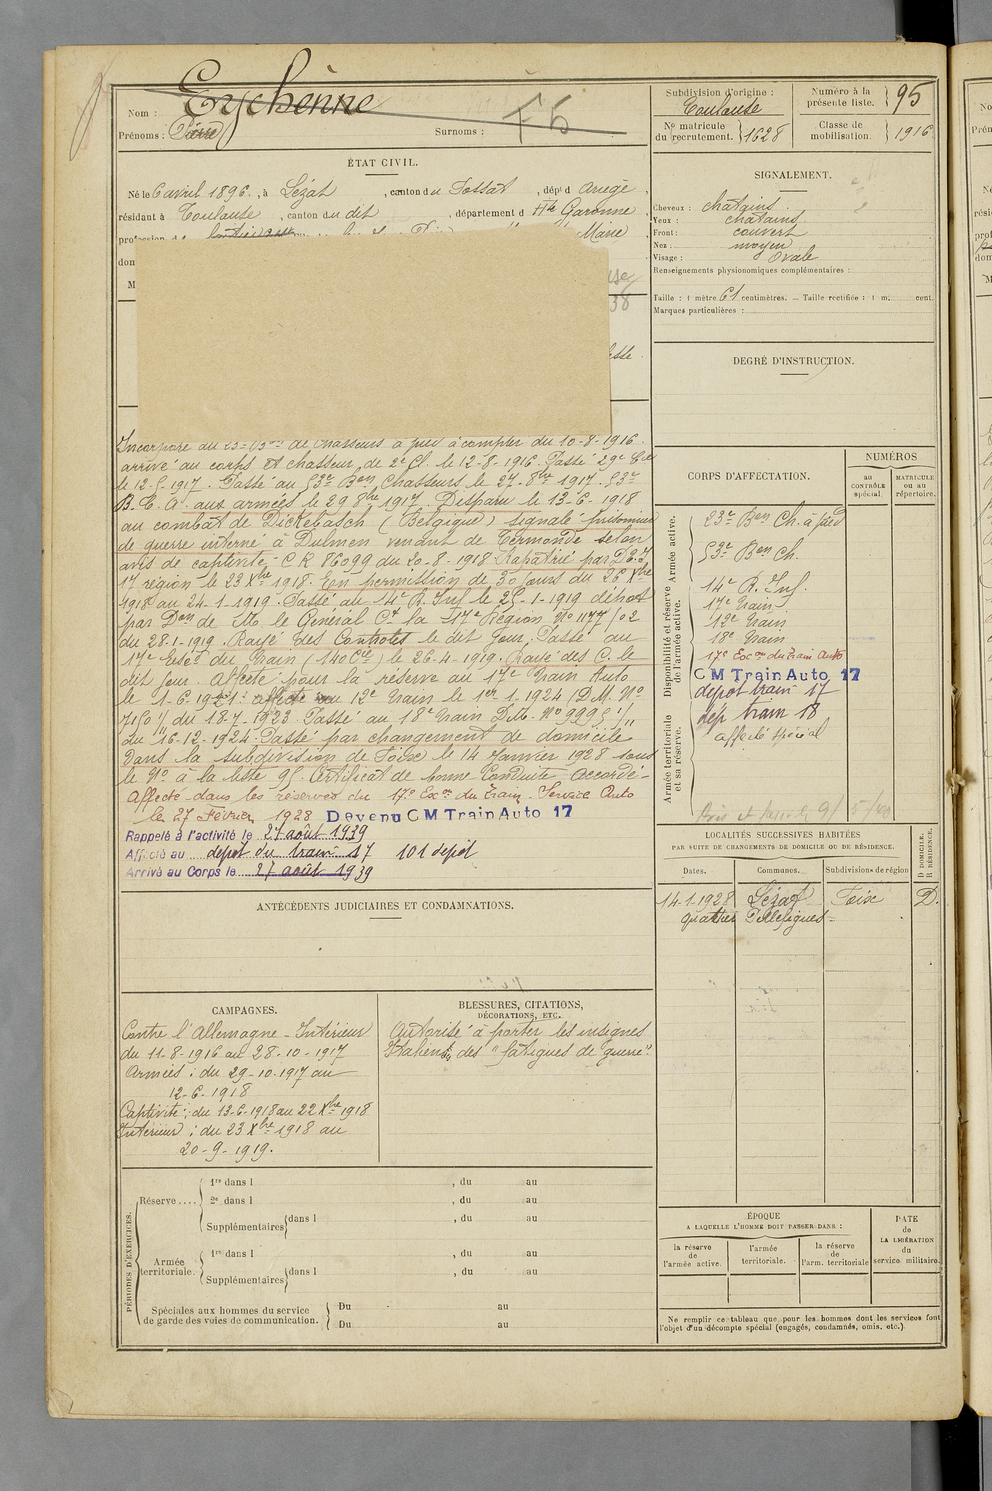 Nom : Eychenne
Prénoms : Pierre
Surnoms :
F6
ÉTAT CIVIL.
Né le 6 avril 1896, à Lézat, canton du Fossat, dép.t d Ariège,
résidant à Toulouse, canton du dit, département d Hte Garonne,
profession d
Marie
dom
M
38
Incorporé au 23e Bon de Chasseurs à pied à compter du 10-8-1916.
arrivé au corps et chasseur de 2e Cl. le 12-8-1916. Passé 29e Cie
le 12-5-1917. Passé au 53e Bon Chasseurs le 27-8bre 1917. 53e
B.C.A. aux armées le 29 8bre 1917. Disparu le 13-6-1918
au combat de Dickebasch (Belgique) signalé prisonnier
de guerre interné à Dulmen venant de Termonde selon
avis de captivité C R 86099 du 20-8-1918 Rapatrié par
17 région le 23 Xbre 1918. En permission de 30 jours du 26 Xbre
1918 au 24-1-1919. Passé au 14e R. Inf le 25-1-1919 dépôt
par Don de M. le Général Ct la 17e Région No 1177/02
du 28-1-1919. Rayé des Controles le dit jour. Passé au
17e Escon du Train (140 Cie) le 26-4-1919. Rayé des C. le
dit jour. Affecté pour la réserve au 17e Train Auto
le 1-6-1921. affecté au 12e Train le 1er-1-1924 (D.M. No
7150 1/11 du 18-7-1923 Passé au 18e Train D.M. No 9995 1/11
du 16-12-1924. Passé par changement de domicile
dans la subdivision de Foix le 14 Janvier 1928 sous
le No à la liste 95. Certificat de bonne Conduite Accordé-
Affecté dans les réserves du 17e Escon du Train. Service Auto
le 27 Février 1928 Devenu CM Train Auto 17
Rappelé à l'activité le 27 août 1939
Affecté au dépôt du train 17 101 dépôt
Arrivé au Corps le 27 août 1939
ANTÉCÉDENTS JUDICIAIRES ET CONDAMNATIONS.
CAMPAGNES.
Contre l'Allemagne - Intérieur
du 11-8-1916 au 28-10-1917
Armées : du 29-10-1917 au
12-6-1918
Captivité : du 13-6-1918 au 22 Xbre 1918
Intérieur : du 23 Xbre 1918 au
20-9-1919.
BLESSURES, CITATIONS,
DÉCORATIONS, ETC.
Autorisé à porter les insignes
Italiens des "fatigues de guerre".
PÉRIODES D'EXERCICES.
Réserve....
1re dans l , du au
2e dans l , du au
Supplémentaires dans l , du au
Armée territoriale.
1re dans l , du au
Supplémentaires dans l , du au
Spéciales aux hommes du service
de garde des voies de communication.
Du au
Du au
Subdivision d'origine :
Toulouse
Numéro à la
présente liste.
95
No matricule
du recrutement.
1628
Classe de
mobilisation.
1916
SIGNALEMENT.
Cheveux : chatains
Yeux : chatains
Front : couvert
Nez : moyen
Visage : Ovale
Renseignements physionomiques complémentaires :
Taille : 1 mètre 61 centimètres. — Taille rectifiée : 1 m. cent.
Marques particulières :
DEGRÉ D'INSTRUCTION.
CORPS D'AFFECTATION.
NUMÉROS
au
CONTRÔLE
spécial.
MATRICULE
ou au
répertoire.
Armée active.
Disponibilité et réserve
de l'armée active.
Armée territoriale
et sa réserve.
23e Bon Ch. à pied
53e Bon Ch.
14e R. Inf.
17e Train
12e Train
18e Train
17e Escon du Train Auto
CM Train Auto 17
depot train 17
dép train 18
affecté spécial
LOCALITÉS SUCCESSIVES HABITÉES
PAR SUITE DE CHANGEMENTS DE DOMICILE OU DE RÉSIDENCE.
D DOMICILE.
R RÉSIDENCE.
Dates.
Communes.
Subdivisions de région
14-1-1928 Lézat Foix D.
quartier
ÉPOQUE
A LAQUELLE L'HOMME DOIT PASSER DANS :
la réserve
de
l'armée active.
l'armée
territoriale.
la réserve
de
l'arm. territoriale
DATE
de
LA LIBÉRATION
du
service militaire.
Ne remplir ce tableau que pour les hommes dont les services font
l'objet d'un décompte spécial (engagés, condamnés, omis, etc.).